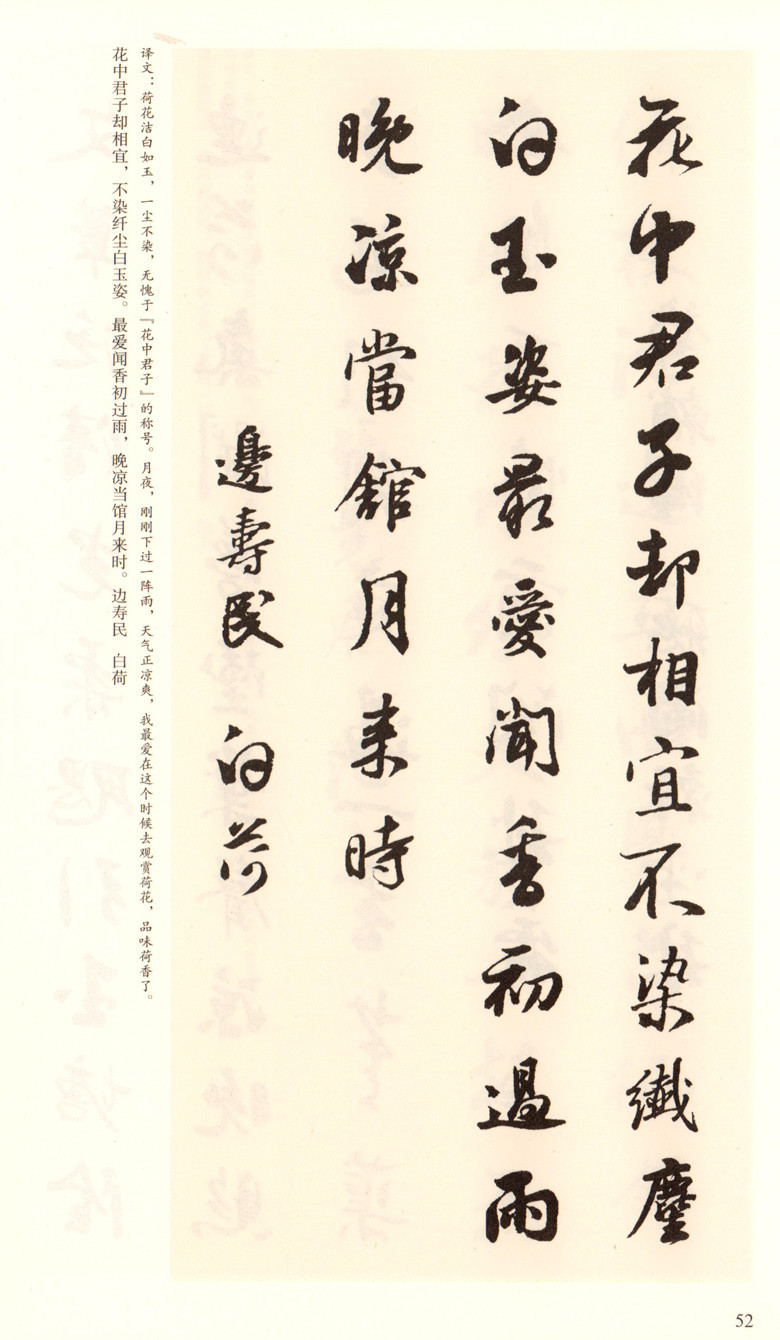 花中君子却相宜不染纖塵
白玉姿最愛聞香初過雨
晚涼當館月来時
邊壽民 白荷
译文：荷花洁白如玉，一尘不染，无愧于『花中君子』的称号。月夜，刚刚下过一阵雨，天气正凉爽，我最爱在这个时候去观赏荷花，品味荷香了。
花中君子却相宜，不染纤尘白玉姿。最爱闻香初过雨，晚凉当馆月来时。边寿民 白荷
52